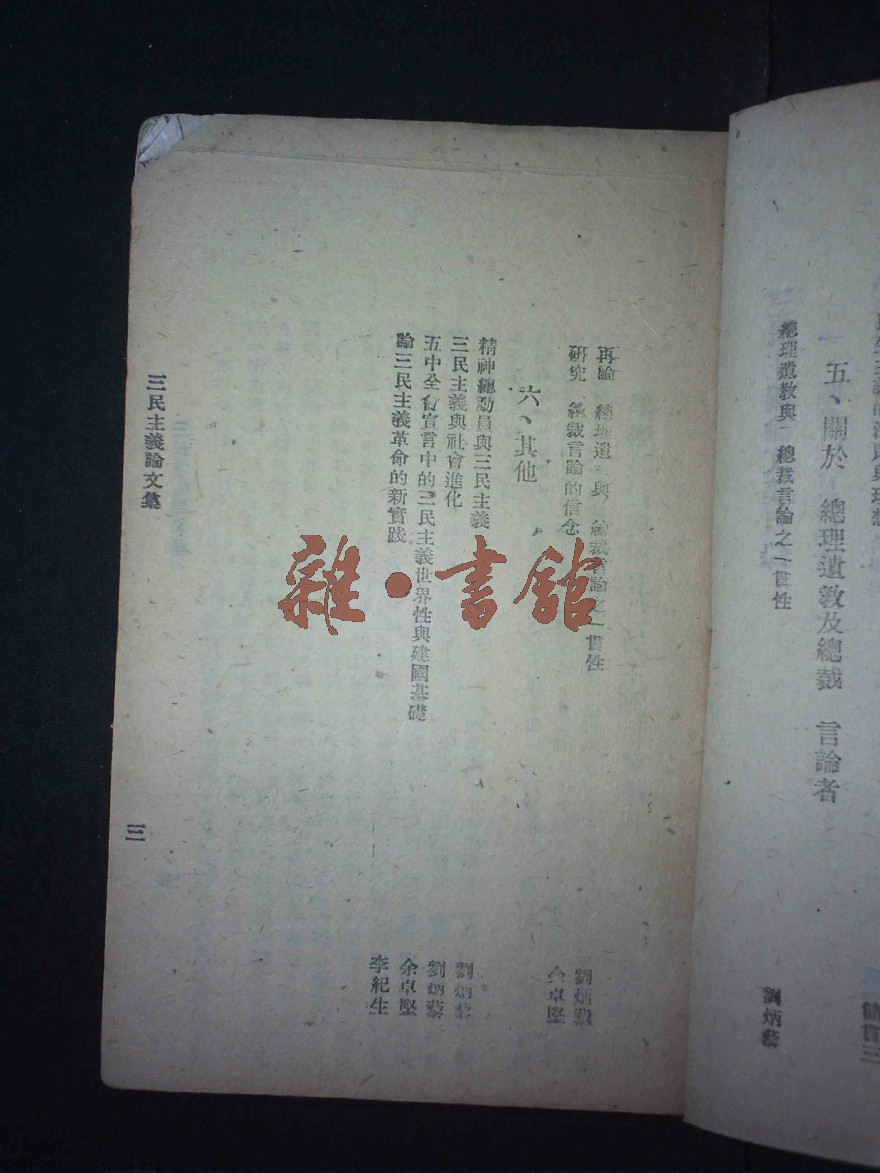 五、關於 總理遺敎及總裁 言論者
總理遺敎與 總裁言論之一貫性 劉炳藜
再論 總理遺敎與 總裁言論之一貫性 劉炳藜
研究 總裁言論的信念 余卓堅
六、其他
精神總動員與三民主義 劉炳藜
三民主義與社會進化 劉炳藜
五中全會宣言中的三民主義世界性與建國基礎 余卓堅
論三民主義革命的新實踐 李紀生
三民主義論文集
三
雜·書館